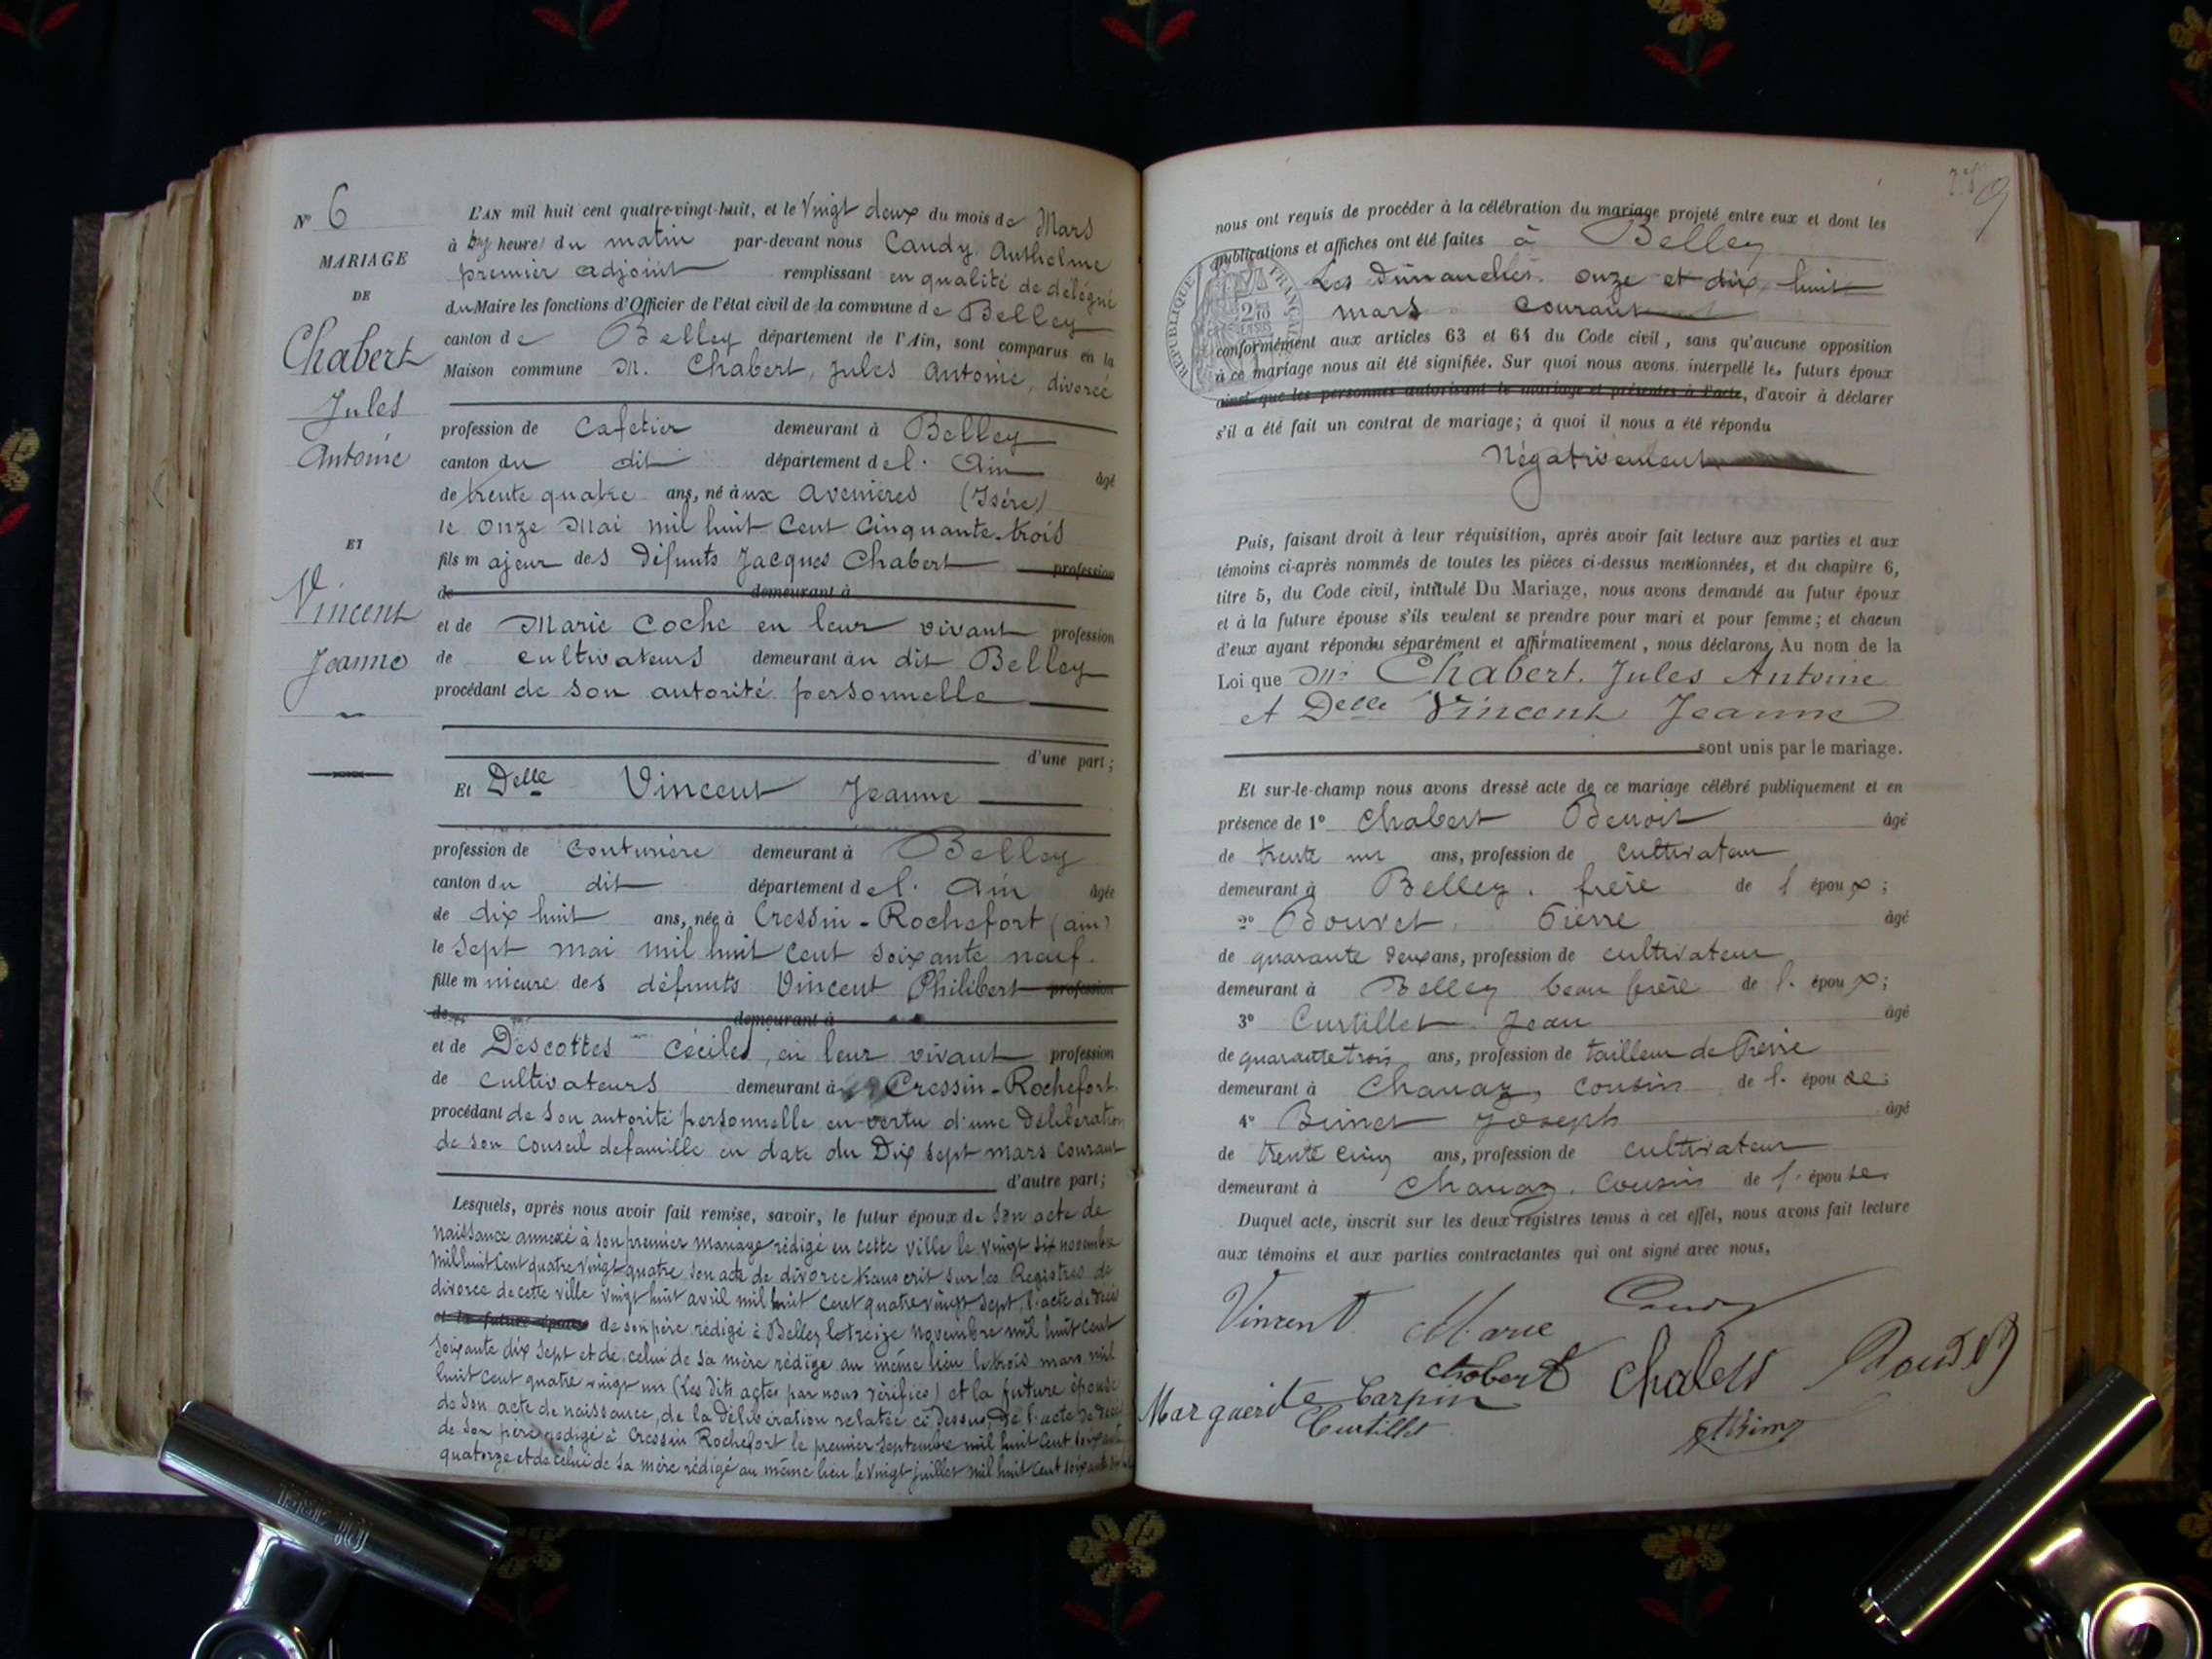 N° 6
MARIAGE
DE
Chabert
Jules
Antoine
ET
Vincent
Jeanne
L'AN mil huit cent quatre-vingt-huit, et le Vingt deux du mois de Mars
à heures du matin par-devant nous Candy, Anthelme
premier adjoint remplissant en qualité de délégué
du Maire les fonctions d'Officier de l'état civil de la commune de Belley
canton de Belley département de l'Ain, sont comparus en la
Maison commune M. Chabert, Jules Antoine, divorcé
profession de Cafetier demeurant à Belley
canton du dit département de l'Ain âgé
de trente quatre ans, né aux avenières (Isère)
le onze Mai mil huit cent cinquante-trois
fils majeur des défunts Jacques Chabert profession
de demeurant à
et de Marie Coche en leur vivant profession
de cultivateurs demeurant au dit Belley
procédant de son autorité personnelle
d'une part;
Et Delle Vincent Jeanne
profession de Couturière demeurant à Belley
canton du dit département de l'Ain âgée
de dix huit ans, née à Cressin-Rochefort (ain)
le sept mai mil huit cent soixante neuf.
fille mineure des défunts Vincent Philibert profession
de demeurant à
et de Descottes Cécile, en leur vivant profession
de cultivateurs demeurant à Cressin-Rochefort.
procédant de son autorité personnelle en vertu d'une délibération
de son Conseil de famille en date du Dix sept mars courant
d'autre part;
Lesquels, après nous avoir fait remise, savoir, le futur époux de son acte de
naissance annexé à son premier mariage rédigé en cette ville le vingt six novembre
mil huit cent quatre vingt quatre son acte de divorce transcrit sur les Registres de
divorce de cette ville vingt huit avril mil huit cent quatre vingt sept, l'acte de décès
et la future épouse de son père rédigé à Belley le treize novembre mil huit cent
soixante dix sept et de celui de sa mère rédigé au même lieu le trois mars mil
huit cent quatre vingt un (les dits actes par nous vérifiés) et la future épouse
de son acte de naissance, de la délibération relatée ci dessus, de l'acte de décès
de son père rédigé à Cressin Rochefort le premier septembre mil huit cent soixante
quatorze et de celui de sa mère rédigé au même lieu le vingt juillet mil huit cent soixante
nous ont requis de procéder à la célébration du mariage projeté entre eux et dont les
publications et affiches ont été faites à Belley
Les dimanches onze et dix huit
mars courant
RÉPUBLIQUE FRANÇAISE
conformément aux articles 63 et 64 du Code civil, sans qu'aucune opposition
à ce mariage nous ait été signifiée. Sur quoi nous avons interpellé les futurs époux
ainsi que les personnes autorisant le mariage et présentes à l'acte, d'avoir à déclarer
s'il a été fait un contrat de mariage; à quoi il nous a été répondu
Négativement
Puis, faisant droit à leur réquisition, après avoir fait lecture aux parties et aux
témoins ci-après nommés de toutes les pièces ci-dessus mentionnées, et du chapitre 6,
titre 5, du Code civil, intitulé Du Mariage, nous avons demandé au futur époux
et à la future épouse s'ils veulent se prendre pour mari et pour femme; et chacun
d'eux ayant répondu séparément et affirmativement, nous déclarons, Au nom de la
Loi que Mr Chabert. Jules Antoine
et Delle Vincent Jeanne
sont unis par le mariage.
Et sur-le-champ nous avons dressé acte de ce mariage célébré publiquement et en
présence de 1° Chabert Benoit âgé
de trente un ans, profession de cultivateur
demeurant à Belley. frère de l'époux;
2° Bouvet, Pierre âgé
de quarante deux ans, profession de cultivateur
demeurant à Belley beau frère de l'époux;
3° Curtillet Jean âgé
de quarante trois ans, profession de tailleur de Pierre
demeurant à Chanaz, cousin de l'épouse;
4° Joseph âgé
de trente cinq ans, profession de cultivateur
demeurant à Chanaz. Cousin de l'épouse
Duquel acte, inscrit sur les deux registres tenus à cet effet, nous avons fait lecture
aux témoins et aux parties contractantes qui ont signé avec nous,
Vincent Marie Candy
Chabert Chabert
Marguerite Carpin
Curtillet